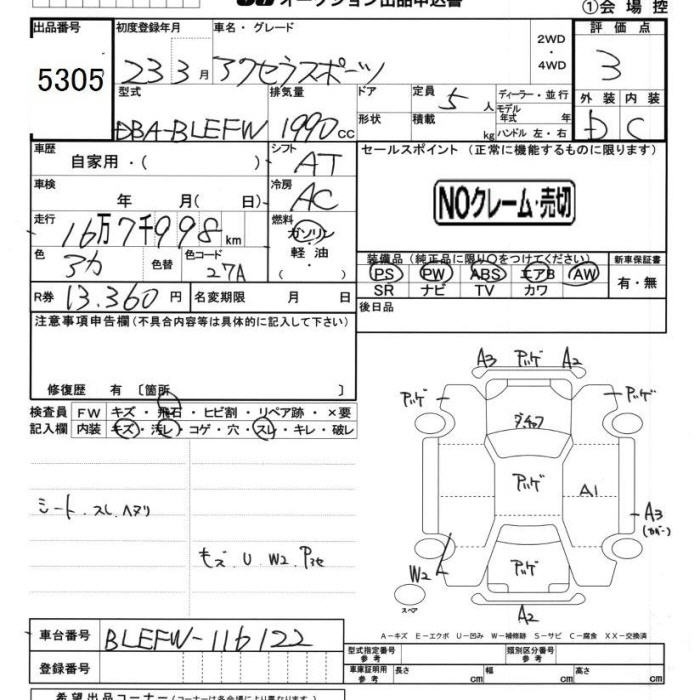 オークション出品申込書
①会場控
出品番号 5305
初度登録年月 23 3月
車名・グレード アクセラスポーツ
2WD・4WD
評価点 3
外装 D 内装 C
型式 DBA-BLEFW
排気量 1990cc
ドア
形状
定員 5人
積載 kg
ディーラー・並行
モデル年式 年
ハンドル 左・右
車歴 自家用・( )
シフト AT
セールスポイント (正常に機能するものに限ります)
車検 年 月( 日)
冷房 AC
NOクレーム・売切
走行 16万7千998km
燃料 ガソリン・軽油・( )
色 アカ 色替 色コード 27A
装備品(純正品に限り○をつけてください)
PS PW ABS エアB AW
SR ナビ TV カワ
新車保証書 有・無
R券 13.360円 名変期限 月 日
後日品
注意事項申告欄(不具合内容等は具体的に記入して下さい)
修復歴 有〔箇所 〕
検査員記入欄
FW キズ・飛石・ヒビ割・リペア跡・×要
内装 キズ・汚レ・コゲ・穴・スレ・キレ・破レ
シート.スレ ヘタリ
キズ U W2
A3 アレゲ A2
アレゲ
アレゲ
アレゲ
A1
A3
(カバー)
アレゲ
W2
スペア
A2
A-キズ E-エクボ U-凹み W-補修跡 S-サビ C-腐食 XX-交換済
車台番号 BLEFW-116122
登録番号
型式指定番号 参考
類別区分番号 参考
車庫証明用 参考 長さ cm 幅 cm 高さ cm
希望出品コーナー(コーナーは各会場により異なります)